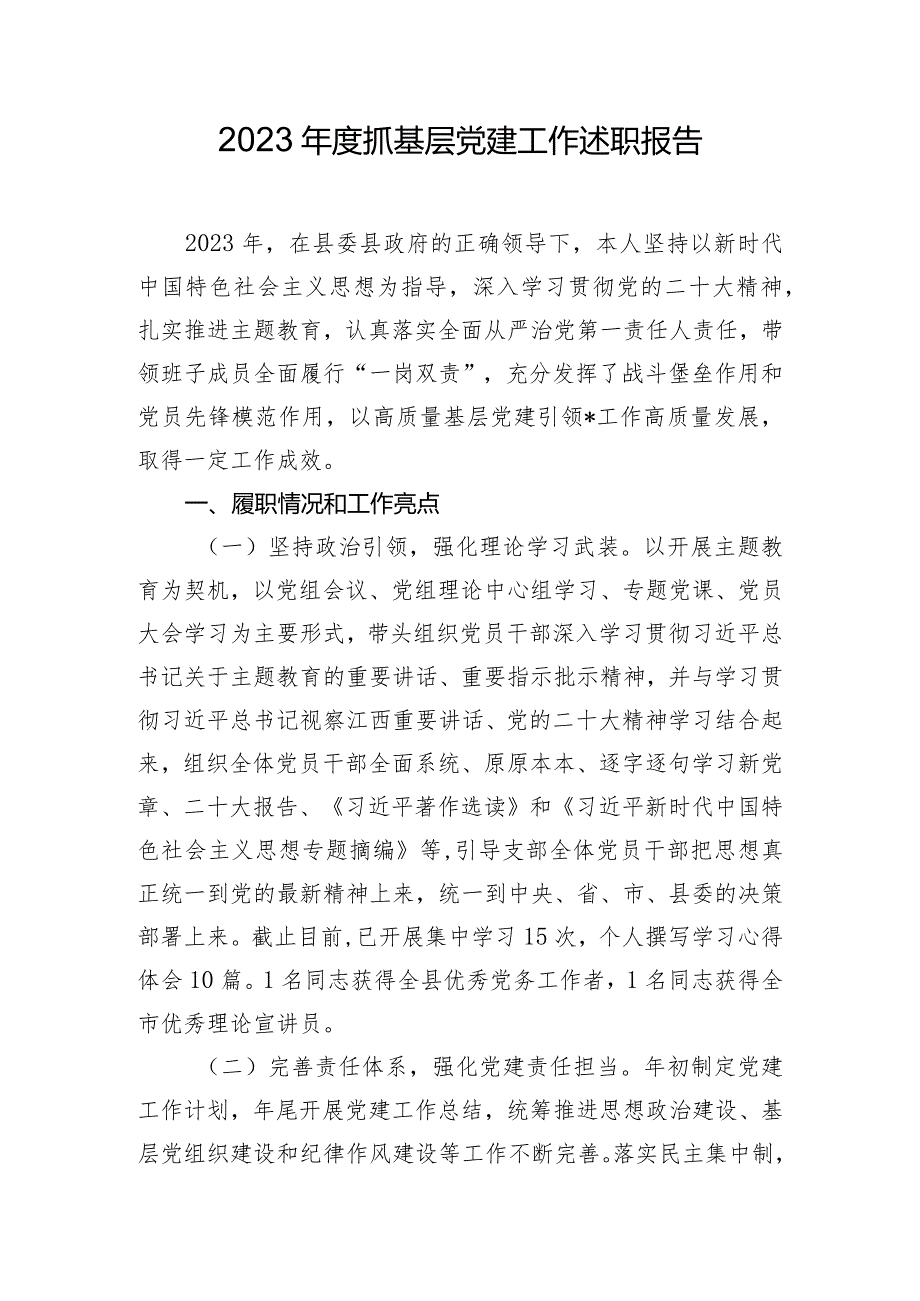 2023 年度抓基层党建工作述职报告
2023 年，在县委县政府的正确领导下，本人坚持以新时代
中国特色社会主义思想为指导，深入学习贯彻党的二十大精神，
扎实推进主题教育，认真落实全面从严治党第一责任人责任，带
领班子成员全面履行“一岗双责”，充分发挥了战斗堡垒作用和
党员先锋模范作用，以高质量基层党建引领*工作高质量发展，
取得一定工作成效。
一、履职情况和工作亮点
（一）坚持政治引领，强化理论学习武装。以开展主题教
育为契机，以党组会议、党组理论中心组学习、专题党课、党员
大会学习为主要形式，带头组织党员干部深入学习贯彻习近平总
书记关于主题教育的重要讲话、重要指示批示精神，并与学习贯
彻习近平总书记视察江西重要讲话、党的二十大精神学习结合起
来，组织全体党员干部全面系统、原原本本、逐字逐句学习新党
章、二十大报告、《习近平著作选读》和《习近平新时代中国特
色社会主义思想专题摘编》等,引导支部全体党员干部把思想真
正统一到党的最新精神上来，统一到中央、省、市、县委的决策
部署上来。截止目前,已开展集中学习 15 次，个人撰写学习心得
体会 10 篇。1 名同志获得全县优秀党务工作者，1 名同志获得全
市优秀理论宣讲员。
（二）完善责任体系，强化党建责任担当。年初制定党建
工作计划，年尾开展党建工作总结，统筹推进思想政治建设、基
层党组织建设和纪律作风建设等工作不断完善。落实民主集中制，